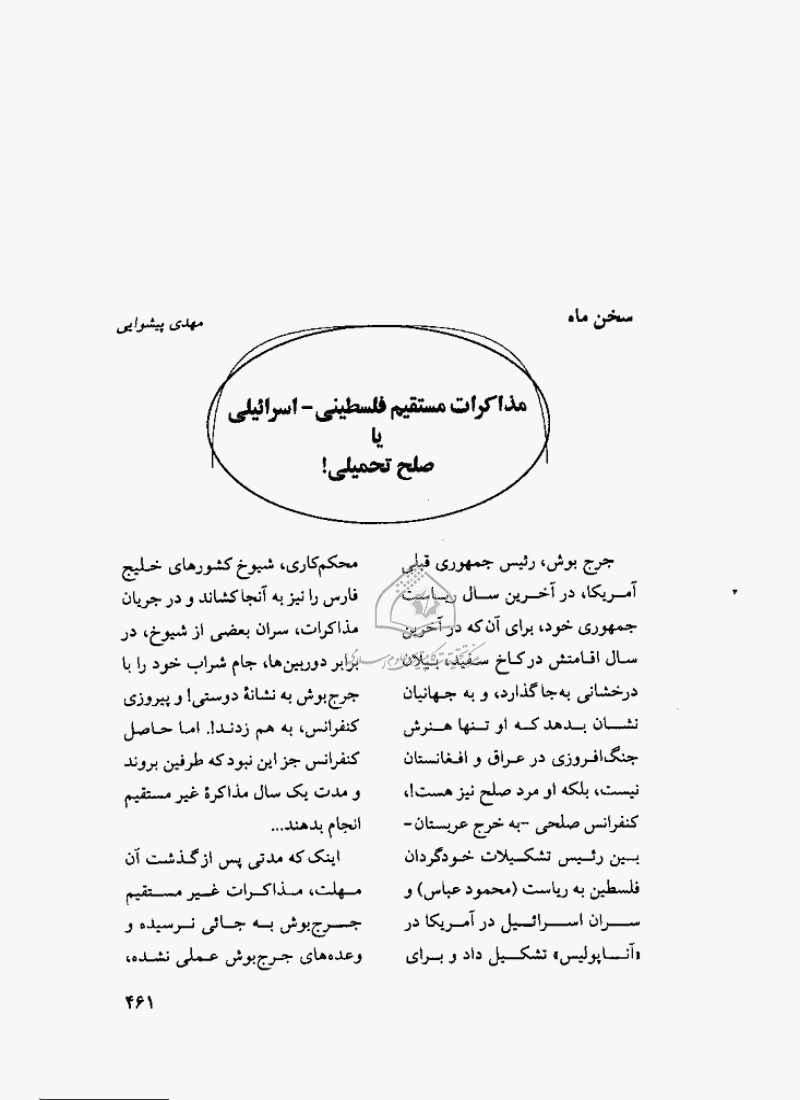 سخن ماه
مهدی پیشوایی
مذاکرات مستقیم فلسطینی - اسرائیلی
یا
صلح تحمیلی!
جرج بوش، رئیس جمهوری قبلی
آمریکا، در آخرین سال ریاست
جمهوری خود، برای آن که در آخرین
سال اقامتش در کاخ سفید، بیلان
درخشانی به‌جا گذارد، و به جهانیان
نشان بدهد که او تنها هنرش
جنگ‌افروزی در عراق و افغانستان
نیست، بلکه او مرد صلح نیز هست!،
کنفرانس صلحی -به خرج عربستان-
بین رئیس تشکیلات خودگردان
فلسطین به ریاست (محمود عباس) و
سران اسرائیل در آمریکا در
«آناپولیس» تشکیل داد و برای
محکم‌کاری، شیوخ کشورهای خلیج
فارس را نیز به آنجا کشاند و در جریان
مذاکرات، سران بعضی از شیوخ، در
برابر دوربین‌ها، جام شراب خود را با
جرج‌بوش به نشانهٔ دوستی! و پیروزی
کنفرانس، به هم زدند!. اما حاصل
کنفرانس جز این نبود که طرفین بروند
و مدت یک سال مذاکرهٔ غیر مستقیم
انجام بدهند...
اینک که مدتی پس از گذشت آن
مهلت، مذاکرات غیر مستقیم
جرج‌بوش به جائی نرسیده و
وعده‌های جرج‌بوش عملی نشده،
۴۶۱